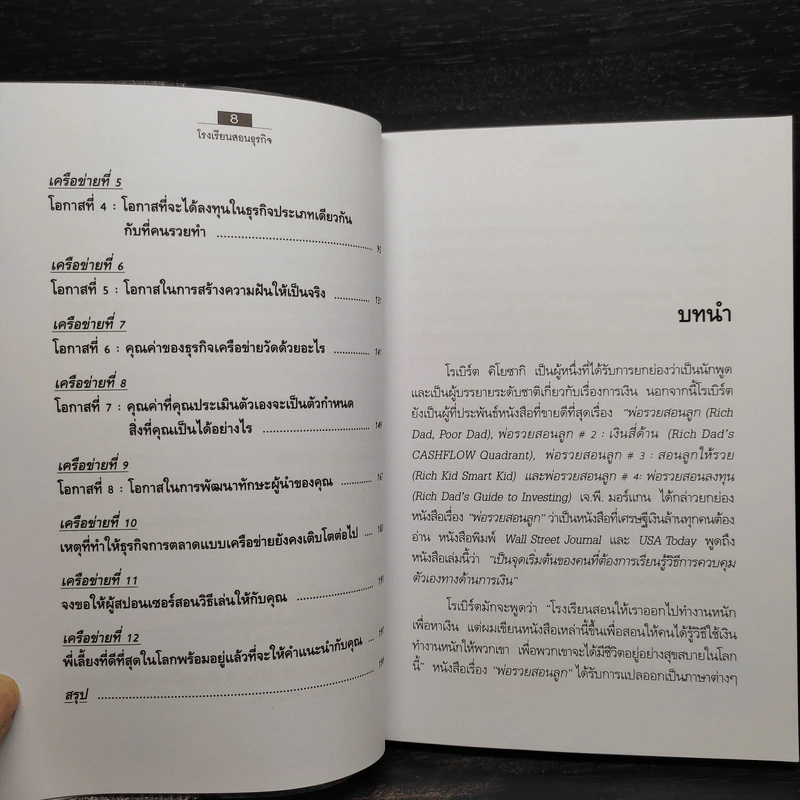 8
โรงเรียนสอนธุรกิจ
เครือข่ายที่ 5
โอกาสที่ 4 : โอกาสที่จะได้ลงทุนในธุรกิจประเภทเดียวกัน
กับที่คนรวยทำ
เครือข่ายที่ 6
โอกาสที่ 5 : โอกาสในการสร้างความฝันให้เป็นจริง
เครือข่ายที่ 7
โอกาสที่ 6 : คุณค่าของธุรกิจเครือข่ายวัดด้วยอะไร
เครือข่ายที่ 8
โอกาสที่ 7 : คุณค่าที่คุณประเมินตัวเองจะเป็นตัวกำหนด
สิ่งที่คุณเป็นได้อย่างไร ........ 149
เครือข่ายที่ 9
โอกาสที่ 8 : โอกาสในการพัฒนาทักษะผู้นำของคุณ ........ 167
เครือข่ายที่ 10
เหตุที่ทำให้ธุรกิจการตลาดแบบเครือข่ายยังคงเติบโตต่อไป
เครือข่ายที่ 11
จงขอให้ผู้สปอนเซอร์สอนวิธีเล่นให้กับคุณ
เครือข่ายที่ 12
พี่เลี้ยงที่ดีที่สุดในโลกพร้อมอยู่แล้วที่จะให้คำแนะนำกับคุณ
สรุป
บทนำ
โรเบิร์ต คิโยซากิ เป็นผู้หนึ่งที่ได้รับการยกย่องว่าเป็นนักพูด
และเป็นผู้บรรยายระดับชาติเกี่ยวกับเรื่องการเงิน นอกจากนี้โรเบิร์ต
ยังเป็นผู้ที่ประพันธ์หนังสือที่ขายดีที่สุดเรื่อง "พ่อรวยสอนลูก (Rich
Dad, Poor Dad), พ่อรวยสอนลูก # 2 : เงินสี่ด้าน (Rich Dad's
CASHFLOW Quadrant), พ่อรวยสอนลูก # 3 : สอนลูกให้รวย
(Rich Kid Smart Kid) และพ่อรวยสอนลูก # 4: พ่อรวยสอนลงทุน
(Rich Dad's Guide to Investing) เจ.พี. มอร์แกน ได้กล่าวยกย่อง
หนังสือเรื่อง "พ่อรวยสอนลูก" ว่าเป็นหนังสือที่เศรษฐีเงินล้านทุกคนต้อง
อ่าน หนังสือพิมพ์ Wall Street Journal และ USA Today พูดถึง
หนังสือเล่มนี้ว่า "เป็นจุดเริ่มต้นของคนที่ต้องการเรียนรู้วิธีการควบคุม
ตัวเองทางด้านการเงิน"
โรเบิร์ตมักจะพูดว่า "โรงเรียนสอนให้เราออกไปทำงานหนัก
เพื่อหาเงิน แต่ผมเขียนหนังสือเหล่านี้ขึ้นเพื่อสอนให้คนได้รู้วิธีใช้เงิน
ทำงานหนักให้พวกเขา เพื่อพวกเขาจะได้มีชีวิตอยู่อย่างสุขสบายในโลก
นี้" หนังสือเรื่อง "พ่อรวยสอนลูก" ได้รับการแปลออกเป็นภาษาต่างๆ